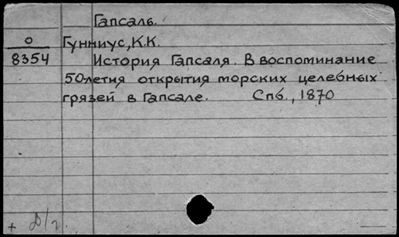 Гапсаль.
О
8354
Гунниус, К.К.
История Гапсаля. В воспоминание
50летия открытия морских целебных
грязей в Гапсале. Спб., 1870
+ Д/г.